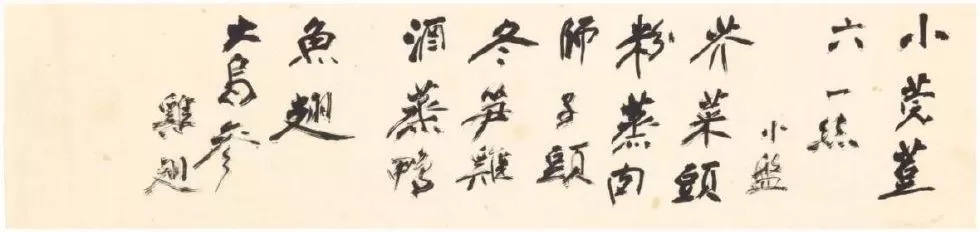 小菀荳
六一絲
小盤
芥菜頭
粉蒸肉
師子頭
冬笋雞
酒蒸鴨
魚翅
大烏參
雞翅